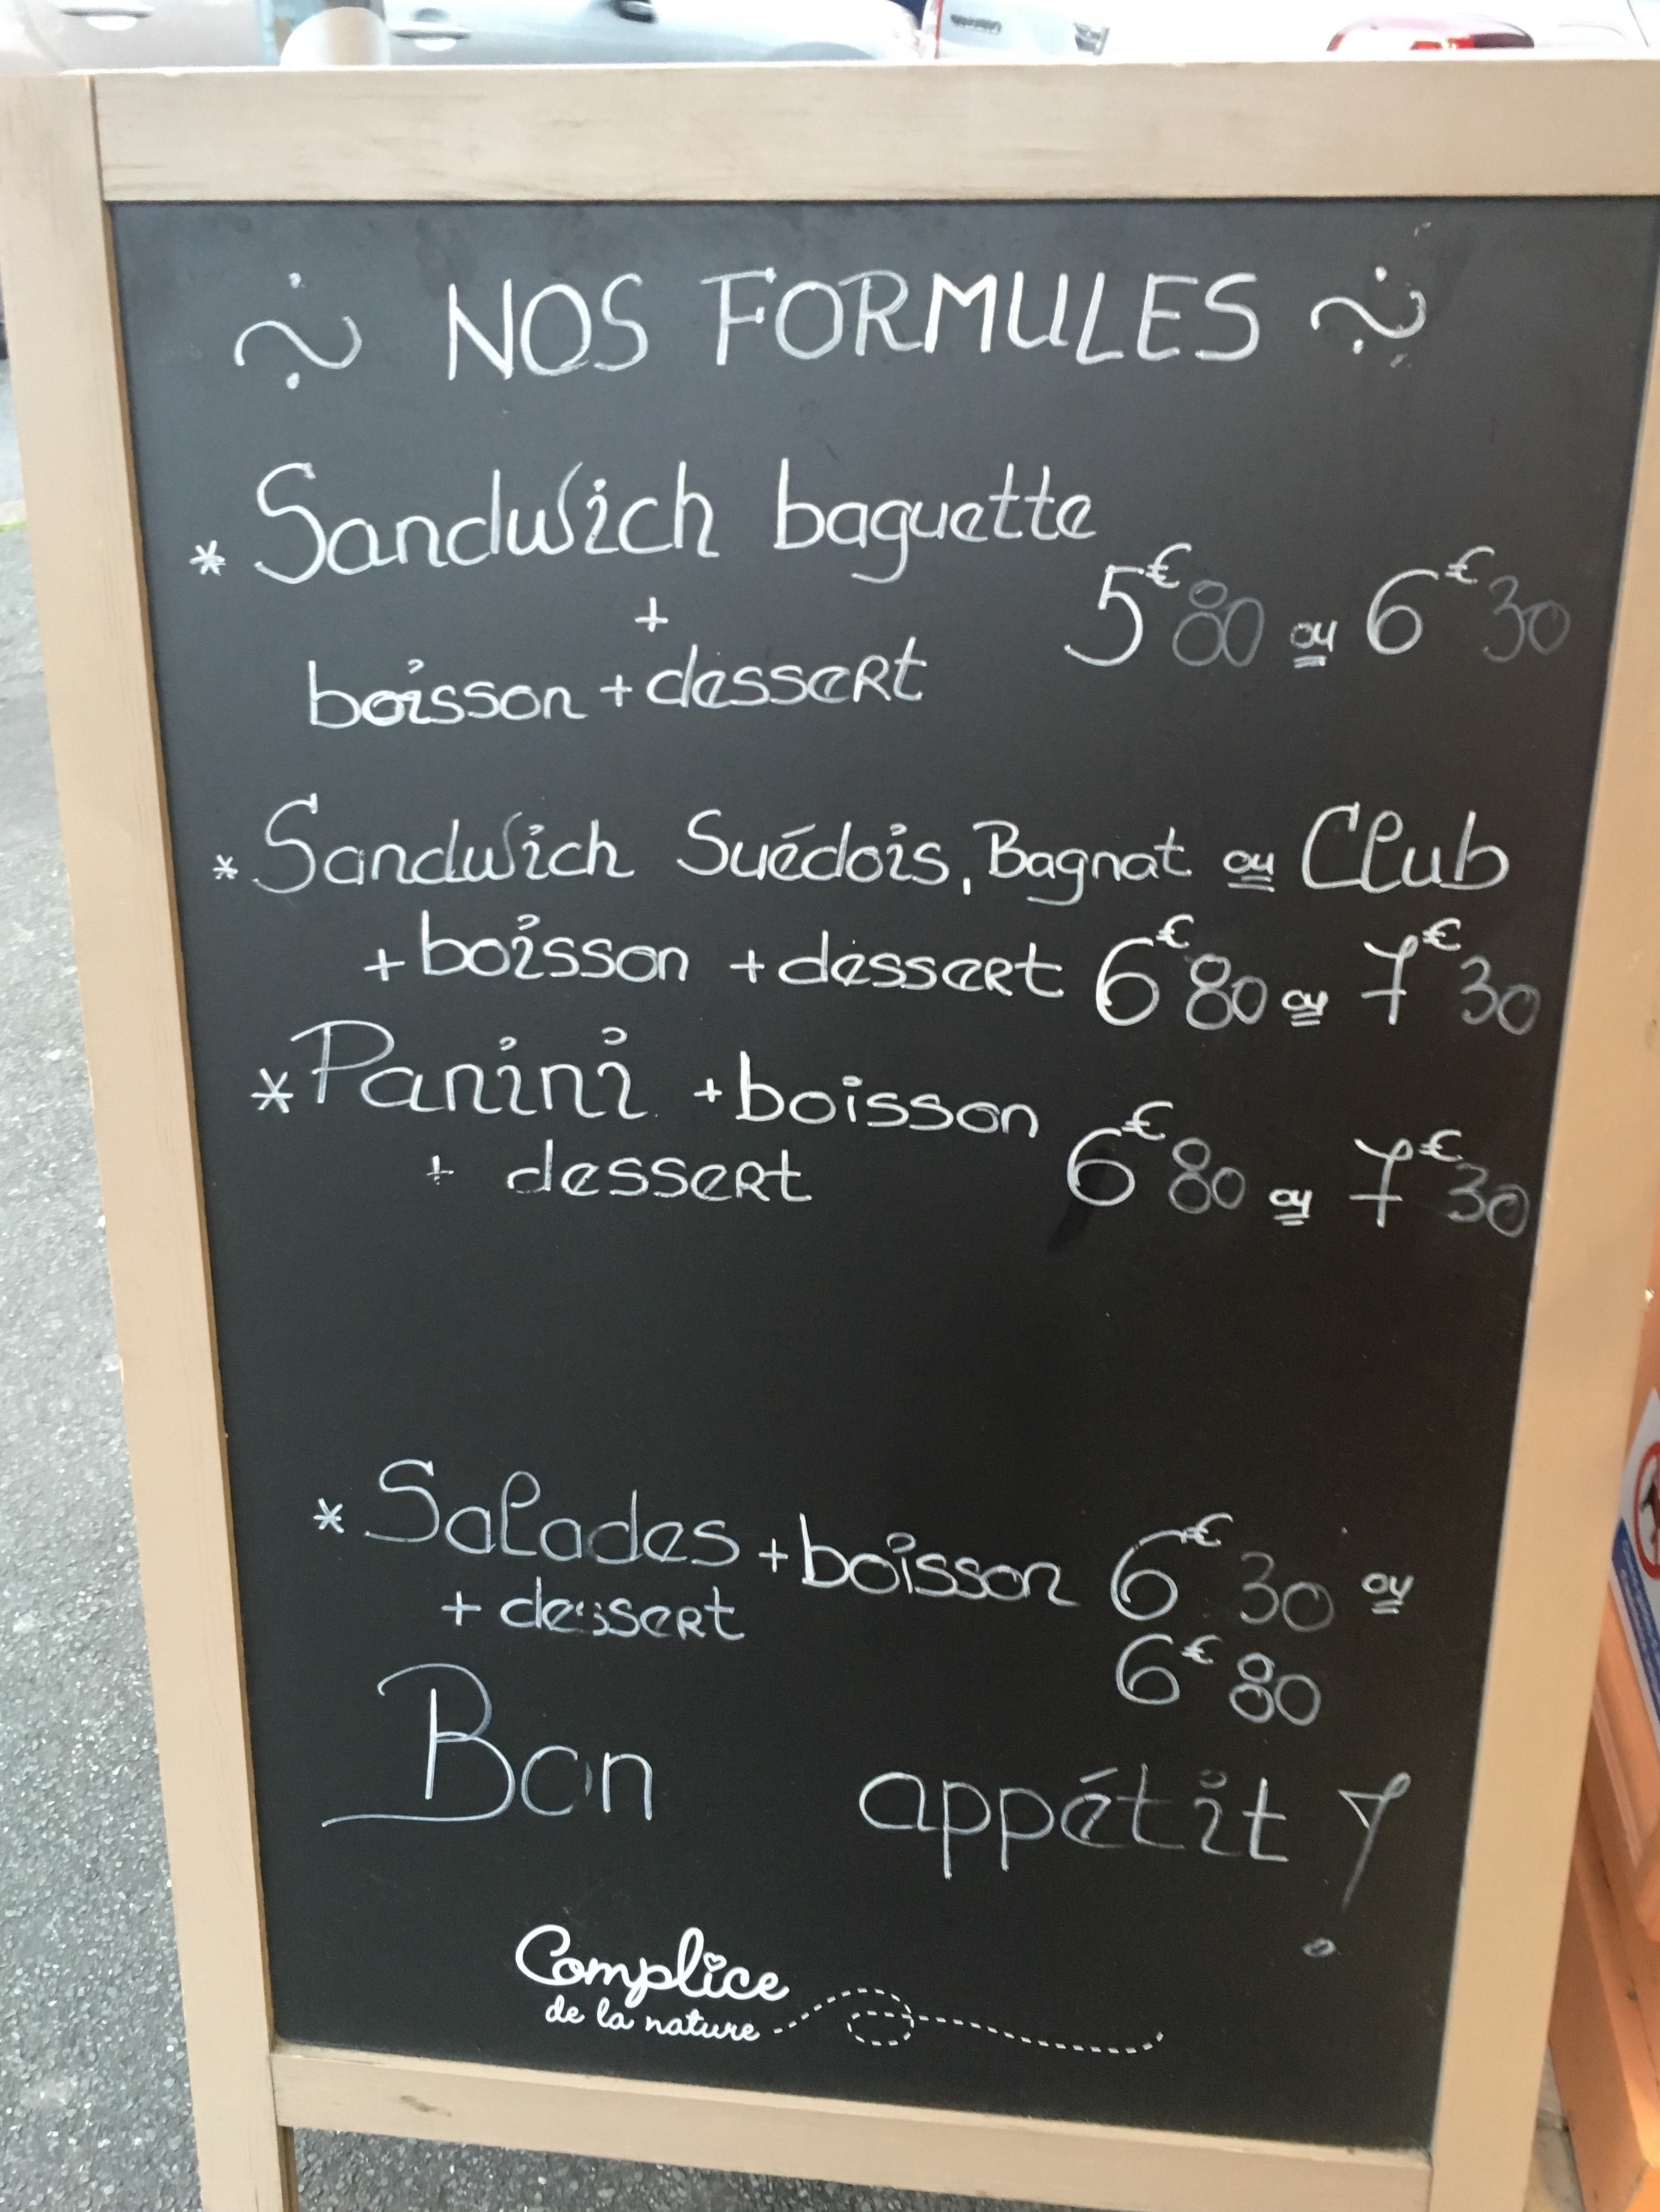 ~ NOS FORMULES ~
* Sandwich baguette
+
5€80 ou 6€30
boisson + dessert
* Sandwich Suédois, Bagnat ou Club
+ boisson + dessert 6€80 ou 7€30
* Panini + boisson
+ dessert 6€80 ou 7€30
* Salades + boisson 6€30 ou
+ dessert
6€80
Bon appétit !
Complice
de la nature